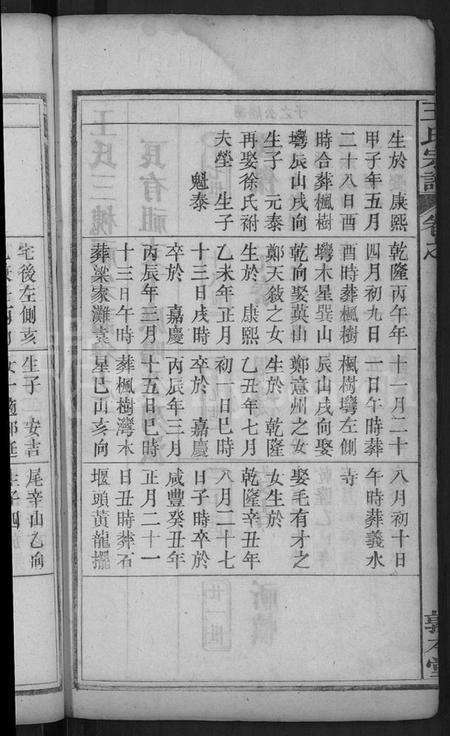 王氏宗譜 卷之
敦本堂
生於 康熙
甲子年五月
二十八日酉
時合葬楓樹
塆辰山戌向
生子 元泰
再娶徐氏祔
夫塋 生子
魁泰
乾隆丙午年
四月初九日
酉時葬楓樹
塆木星巽山
乾向娶英山
鄭天敘之女
生於 康熙
乙未年正月
十三日戌時
卒於 嘉慶
丙辰年三月
十三日午時
葬梁家灘袁
十一月二十
一日午時葬
楓樹塆左側
辰山戌向娶
鄭意州之女
生於 乾隆
乙丑年七月
初一日巳時
卒於 嘉慶
丙辰年三月
十五日巳時
葬楓樹灣木
星巳山亥向
八月初十日
午時葬義水
寺
娶毛有才之
女生於
乾隆辛丑年
八月二十七
日子時卒於
咸豐癸丑年
正月二十一
日丑時葬石
堰頭黃龍擺
宅後左側亥
生子 安吉
尾辛山乙向